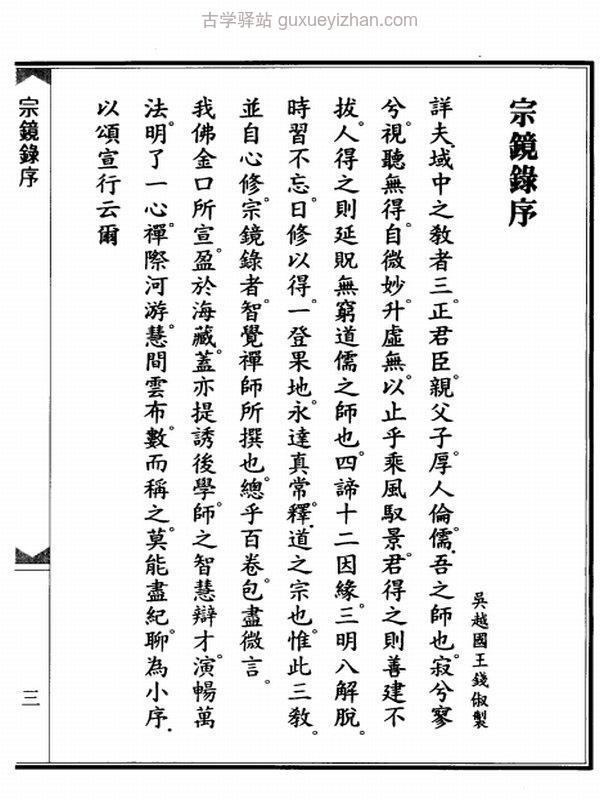 古学驿站 guxueyizhan.com
宗鏡錄序
吳越國王錢俶製
詳夫.域中之教者三。正君臣。親父子。厚人倫。儒.吾之師也。寂兮寥
兮。視聽無得。自微妙。升虛無。以止乎乘風馭景。君得之則善建不
拔。人得之則延貺無窮。道儒之師也。四諦十二因緣。三明八解脫。
時習不忘。日修以得。一登果地。永達真常。釋.道之宗也。惟此三教。
並自心修。宗鏡錄者。智覺禪師所撰也。總乎百卷。包盡微言。
我佛金口所宣。盈於海藏。蓋亦提誘後學。師之智慧辯才。演暢萬
法。明了一心。禪際河游。慧間雲布。數而稱之。莫能盡紀。聊為小序.
以頌宣行云爾
宗鏡錄序
三